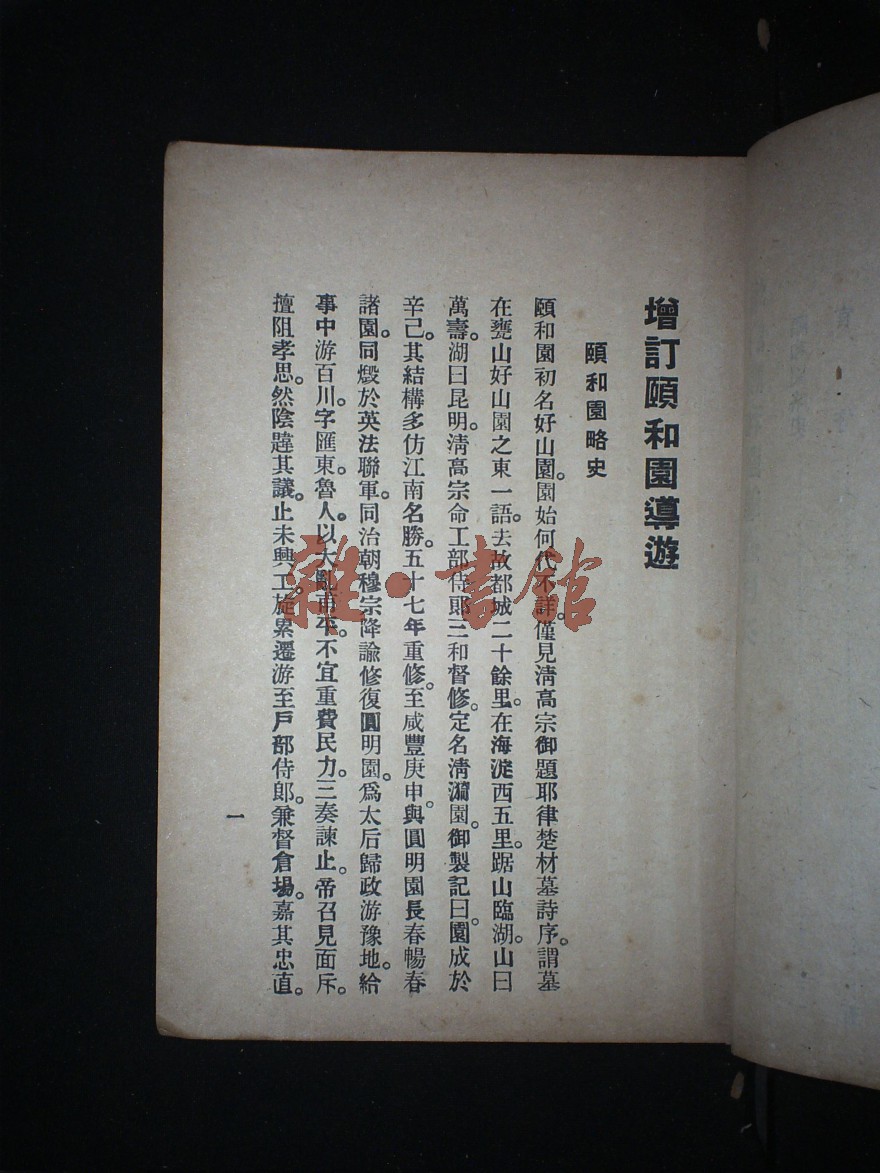 增訂頤和園導遊
頤和園略史
頤和園初名好山園。園始何代不詳。僅見淸高宗御題耶律楚材墓詩序。謂墓
在甕山好山園之東一語。去故都城二十餘里。在海淀西五里。踞山臨湖。山曰
萬壽。湖曰昆明。淸高宗命工部侍郞三和督修。定名淸漪園。御製記曰。園成於
辛巳。其結構多仿江南名勝。五十七年重修。至咸豐庚申。與圓明園長春暢春
諸園。同燬於英法聯軍。同治朝穆宗降諭修復圓明園。爲太后歸政游豫地。給
事中游百川。字匯東。魯人。以大亂甫平。不宜重費民力。三奏諫止。帝召見面斥。
擅阻孝思。然陰韙其議。止未興工。旋累遷游至戶部侍郎。兼督倉場。嘉其忠直。
一
雜·書館